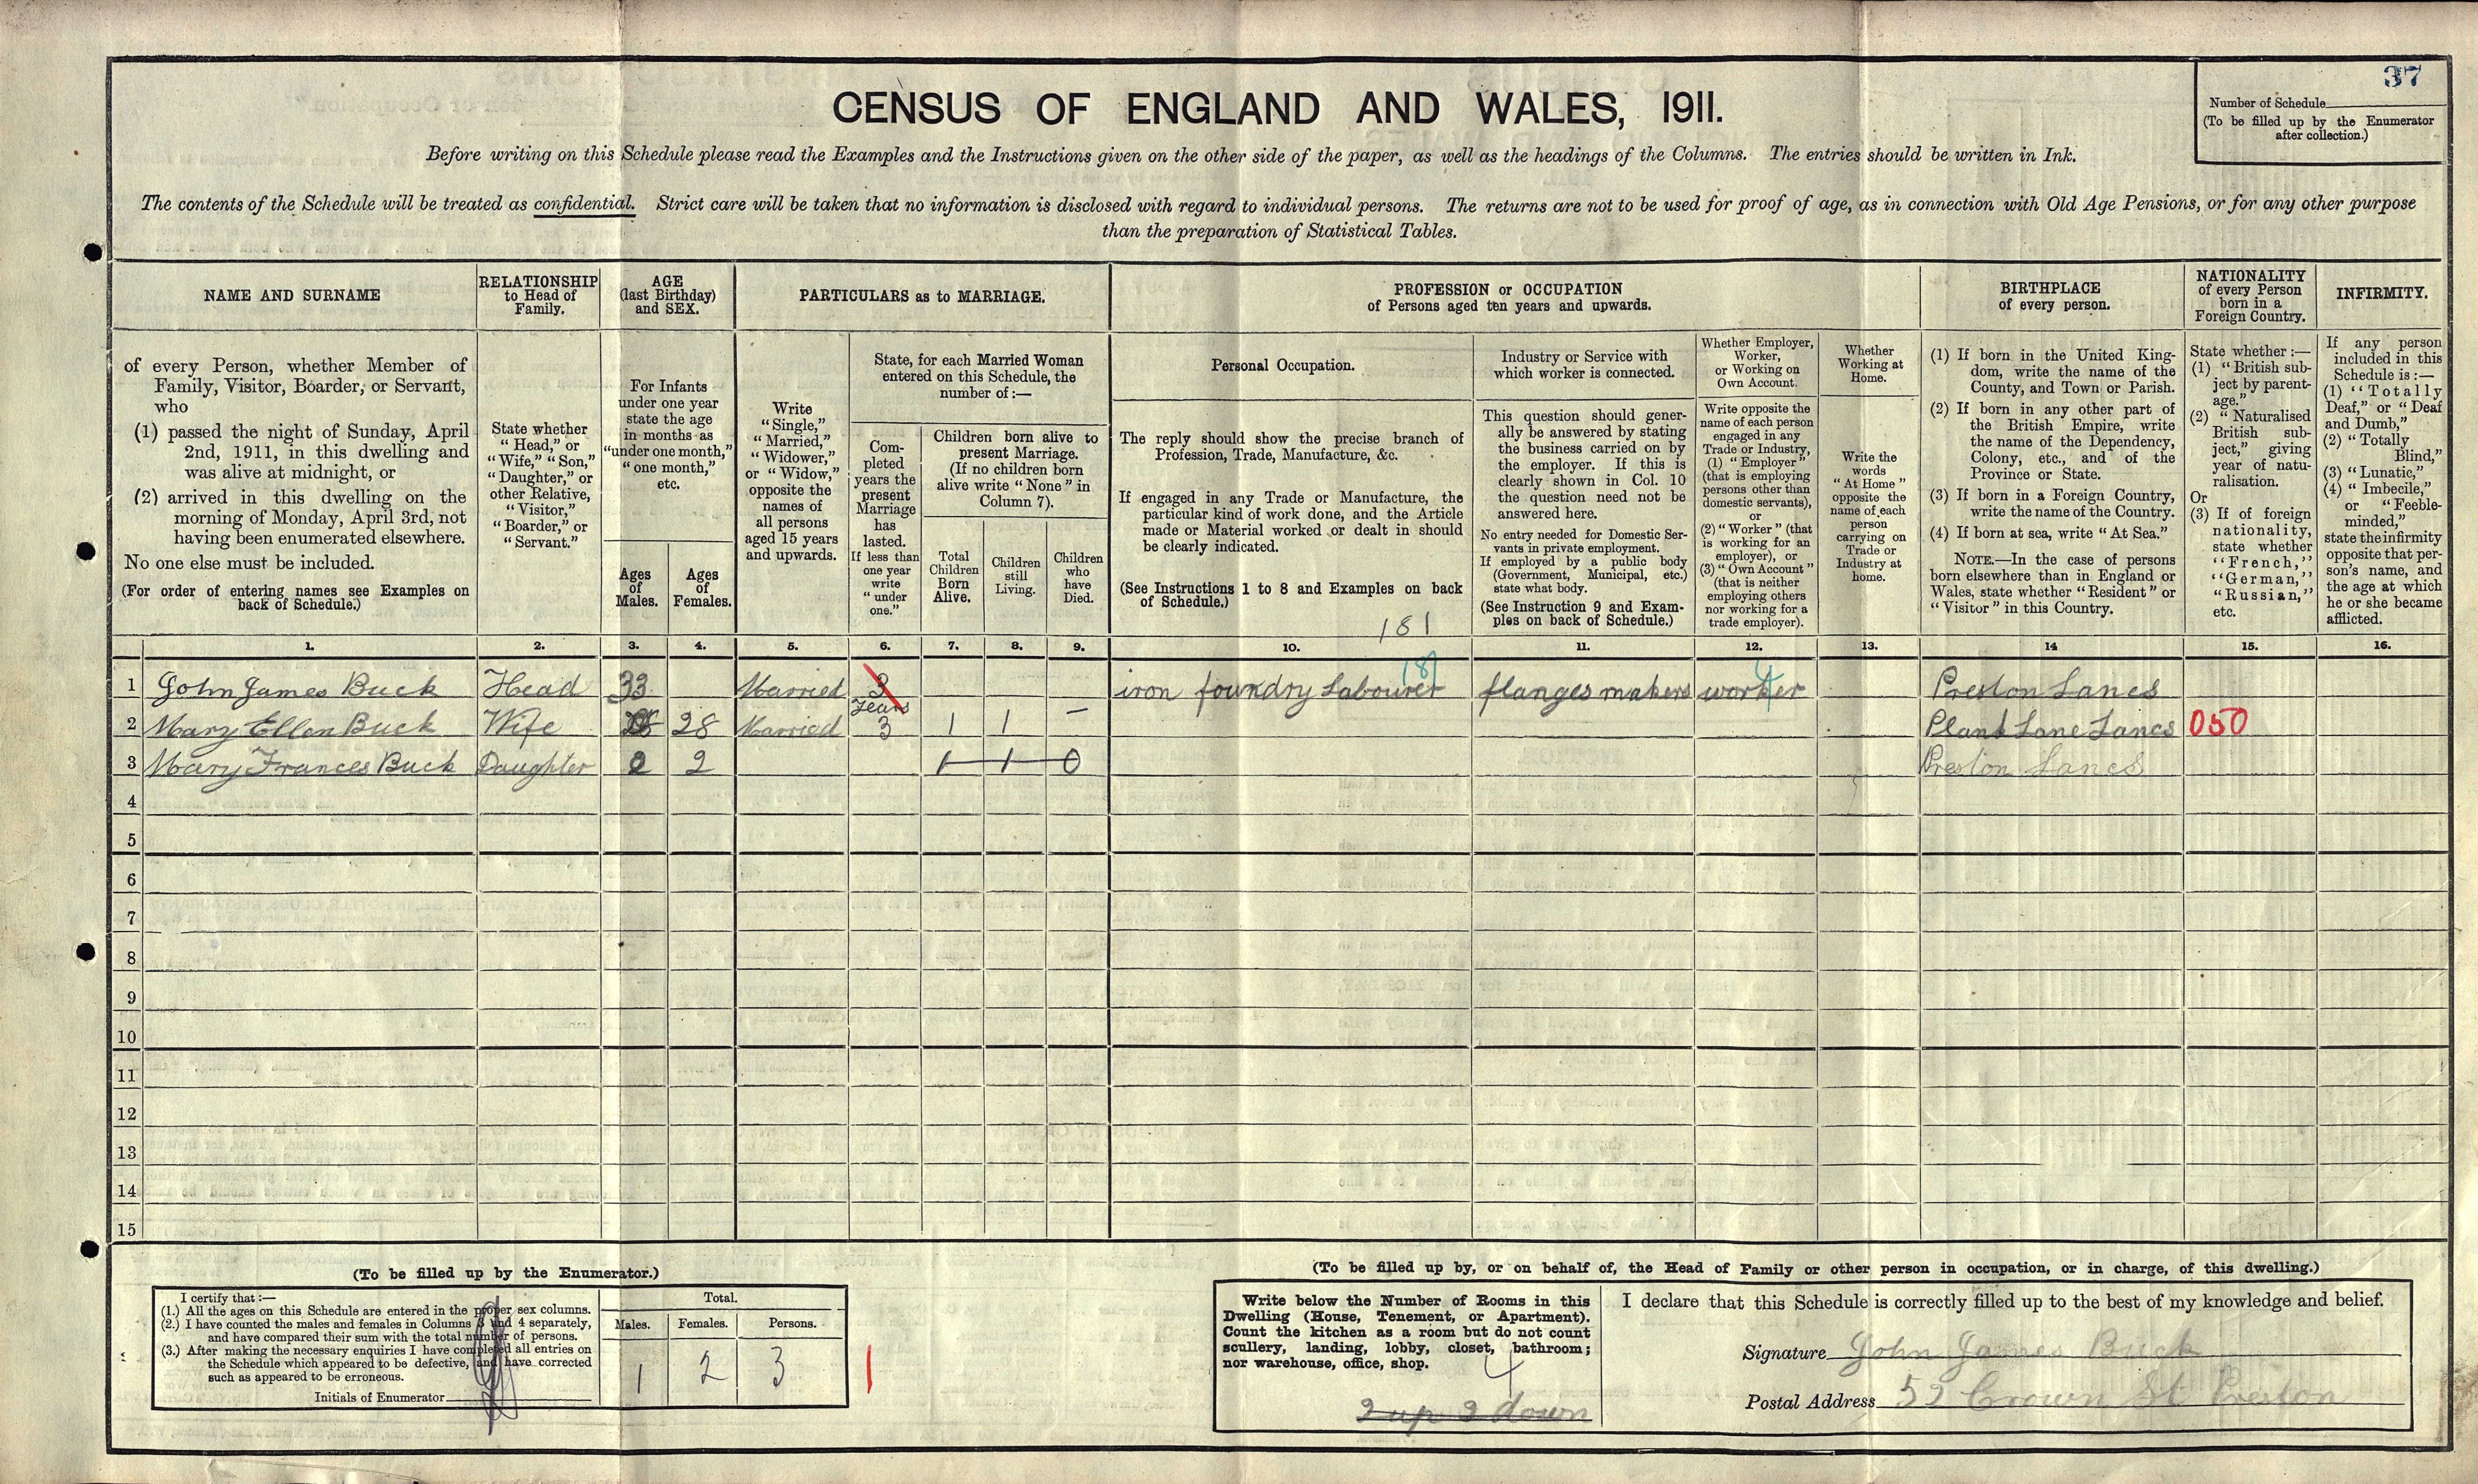 37
Number of Schedule
(To be filled up by the Enumerator
after collection.)
CENSUS OF ENGLAND AND WALES, 1911.
Before writing on this Schedule please read the Examples and the Instructions given on the other side of the paper, as well as the headings of the Columns. The entries should be written in Ink.
The contents of the Schedule will be treated as confidential. Strict care will be taken that no information is disclosed with regard to individual persons. The returns are not to be used for proof of age, as in connection with Old Age Pensions, or for any other purpose
than the preparation of Statistical Tables.
NAME AND SURNAME
of every Person, whether Member of
Family, Visitor, Boarder, or Servant,
who
(1) passed the night of Sunday, April
2nd, 1911, in this dwelling and
was alive at midnight, or
(2) arrived in this dwelling on the
morning of Monday, April 3rd, not
having been enumerated elsewhere.
No one else must be included.
(For order of entering names see Examples on
back of Schedule.)
RELATIONSHIP
to Head of
Family.
State whether
"Head," or
"Wife," "Son,"
"Daughter," or
other Relative,
"Visitor,"
"Boarder," or
"Servant."
AGE
(last Birthday)
and SEX.
For Infants
under one year
state the age
in months as
"under one month,"
"one month,"
etc.
Ages
of
Males.
Ages
of
Females.
PARTICULARS as to MARRIAGE.
Write
"Single,"
"Married,"
"Widower,"
or "Widow,"
opposite the
names of
all persons
aged 15 years
and upwards.
State, for each Married Woman
entered on this Schedule, the
number of:—
Com-
pleted
years the
present
Marriage
has
lasted.
If less than
one year
write
"under
one."
Children born alive to
present Marriage.
(If no children born
alive write "None" in
Column 7).
Total
Children
Born
Alive.
Children
still
Living.
Children
who
have
Died.
PROFESSION or OCCUPATION
of Persons aged ten years and upwards.
Personal Occupation.
The reply should show the precise branch of
Profession, Trade, Manufacture, &c.
If engaged in any Trade or Manufacture, the
particular kind of work done, and the Article
made or Material worked or dealt in should
be clearly indicated.
(See Instructions 1 to 8 and Examples on back
of Schedule.)
181
Industry or Service with
which worker is connected.
This question should gener-
ally be answered by stating
the business carried on by
the employer. If this is
clearly shown in Col. 10
the question need not be
answered here.
No entry needed for Domestic Ser-
vants in private employment.
If employed by a public body
(Government, Municipal, etc.)
state what body.
(See Instruction 9 and Exam-
ples on back of Schedule.)
Whether Employer,
Worker,
or Working on
Own Account.
Write opposite the
name of each person
engaged in any
Trade or Industry,
(1) "Employer"
(that is employing
persons other than
domestic servants),
or
(2) "Worker" (that
is working for an
employer), or
(3) "Own Account"
(that is neither
employing others
nor working for a
trade employer).
Whether
Working at
Home.
Write the
words
"At Home"
opposite the
name of each
person
carrying on
Trade or
Industry at
home.
BIRTHPLACE
of every person.
(1) If born in the United King-
dom, write the name of the
County, and Town or Parish.
(2) If born in any other part of
the British Empire, write
the name of the Dependency,
Colony, etc., and of the
Province or State.
(3) If born in a Foreign Country,
write the name of the Country.
(4) If born at sea, write "At Sea."
NOTE.—In the case of persons
born elsewhere than in England or
Wales, state whether "Resident" or
"Visitor" in this Country.
NATIONALITY
of every Person
born in a
Foreign Country.
State whether:—
(1) "British sub-
ject by parent-
age."
(2) "Naturalised
British sub-
ject," giving
year of natu-
ralisation.
Or
(3) If of foreign
nationality,
state whether
"French,"
"German,"
"Russian,"
etc.
INFIRMITY.
If any person
included in this
Schedule is:—
(1) "Totally
Deaf," or "Deaf
and Dumb,"
(2) "Totally
Blind,"
(3) "Lunatic,"
(4) "Imbecile,"
or "Feeble-
minded,"
state the infirmity
opposite that per-
son's name, and
the age at which
he or she became
afflicted.
1. 2. 3. 4. 5. 6. 7. 8. 9. 10. 11. 12. 13. 14 15. 16.
1 John James Buck Head 33 Married 3 years iron foundry Labourer 181 flanges makers worker 4 Preston Lancs
2 Mary Ellen Buck Wife 28 Married 3 1 1 – Plank Lane Lancs 050
3 Mary Frances Buck Daughter 2 2 1 1 0 Preston Lancs
4
5
6
7
8
9
10
11
12
13
14
15
(To be filled up by the Enumerator.)
I certify that:—
(1.) All the ages on this Schedule are entered in the proper sex columns.
(2.) I have counted the males and females in Columns 3 and 4 separately,
and have compared their sum with the total number of persons.
(3.) After making the necessary enquiries I have completed all entries on
the Schedule which appeared to be defective, and have corrected
such as appeared to be erroneous.
Initials of Enumerator
Total.
Males. Females. Persons.
1 2 3
1
(To be filled up by, or on behalf of, the Head of Family or other person in occupation, or in charge, of this dwelling.)
Write below the Number of Rooms in this
Dwelling (House, Tenement, or Apartment).
Count the kitchen as a room but do not count
scullery, landing, lobby, closet, bathroom;
nor warehouse, office, shop.
4
2 up 2 down
I declare that this Schedule is correctly filled up to the best of my knowledge and belief.
Signature John James Buck
Postal Address 52 Crown St Preston